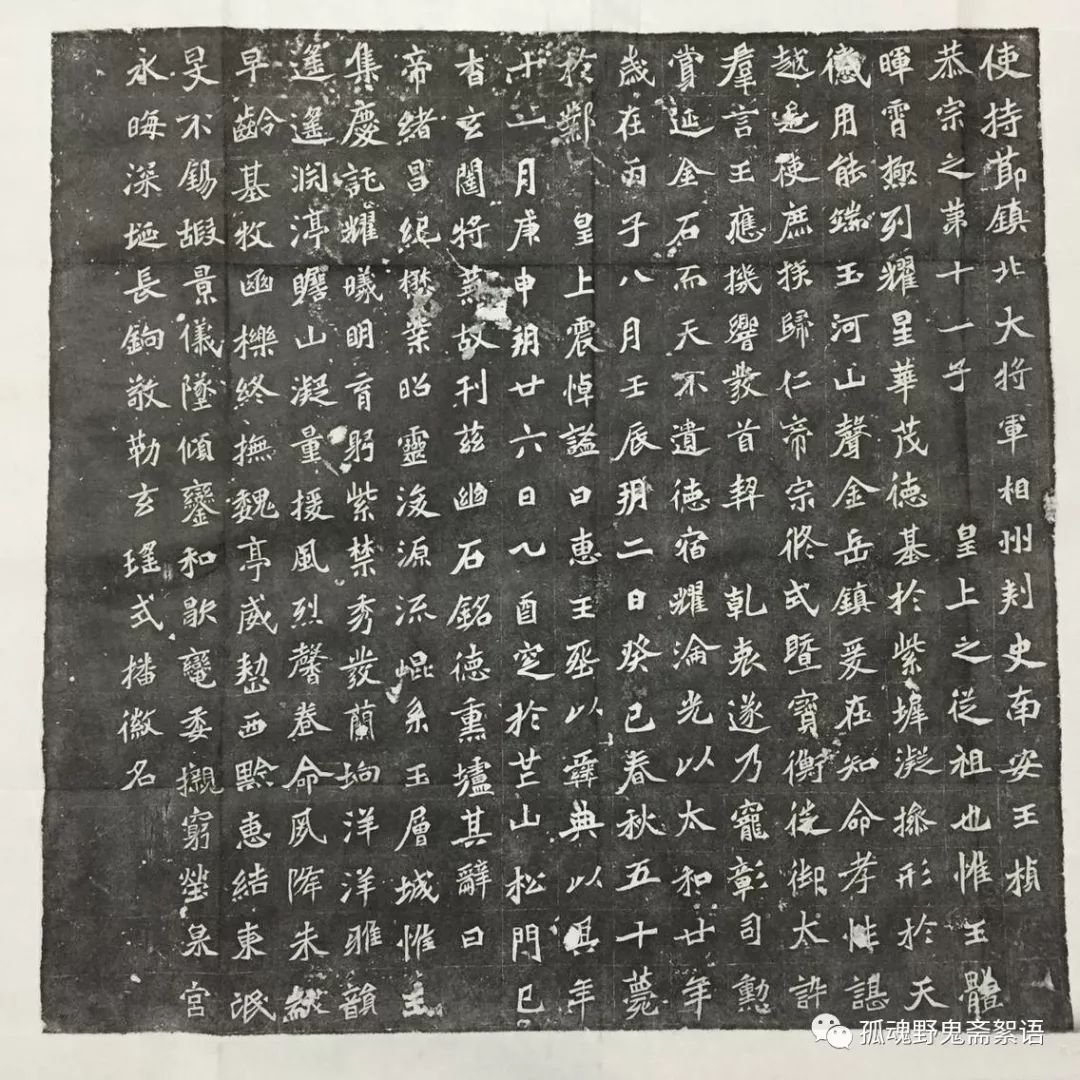 使持節鎮北大將軍相州刺史南安王楨
恭宗之第十一子 皇上之從祖也惟王體
暉霄極列耀星華茂德基於紫墀凝操形於天
感用能端玉河山聲金岳鎮爰在知命孝性諶
越遂使庶族歸仁帝宗攸式暨寶衡徙御太訊
羣言王應機響發首契 乾衷遂乃寵彰司勳
賞延金石而天不遺德宿耀淪光以太和廿年
歲在丙子八月壬辰朔二日癸巳春秋五十薨
於鄴 皇上震悼謚曰惠王葬以彝典以其年
十一月庚申朔廿六日乙酉窆於芒山松門已
杳玄闥將蕪故刊茲幽石銘德熏壚其辭曰
帝緒昌紀懋業昭靈浚源流崐系玉層城惟王
集慶託耀曦明育躬紫禁秀發蘭坰洋洋雅韻
遙遙淵渟瞻山凝量援風烈馨卷命夙降朱黻
早齡基牧幽櫟終撫魏亭威整西黔惠結東氓
旻不錫嘏景儀墜傾鑾和歇轡委櫬窮塋泉宮
永晦深埏長鉤敬勒玄瑤式播徽名
孤魂野鬼斋絮语